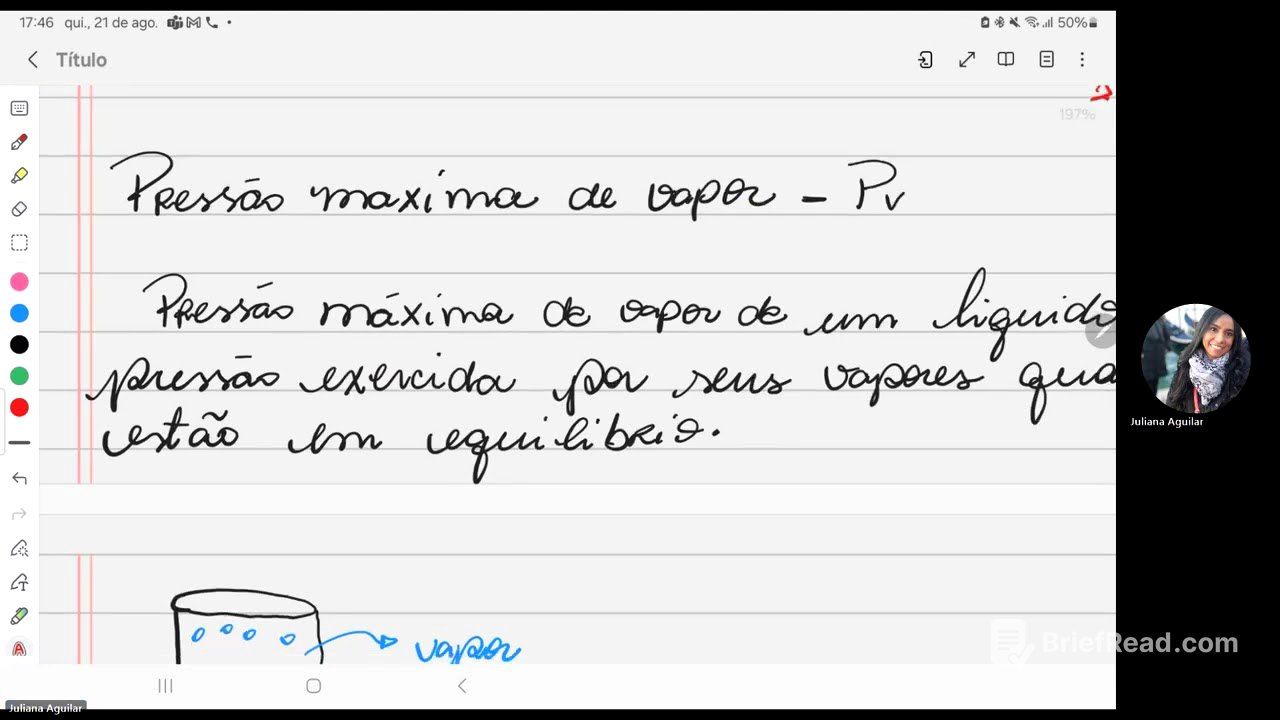 17:46 qui., 21 de ago.
50%
Título
197%
Pressão maxima de vapor - Pv
Pressão máxima de vapor de um liquido
pressão exercida por seus vapores qua
estão em equilibrio.
vapor
Juliana Aguilar
BriefRead.com
Juliana Aguilar